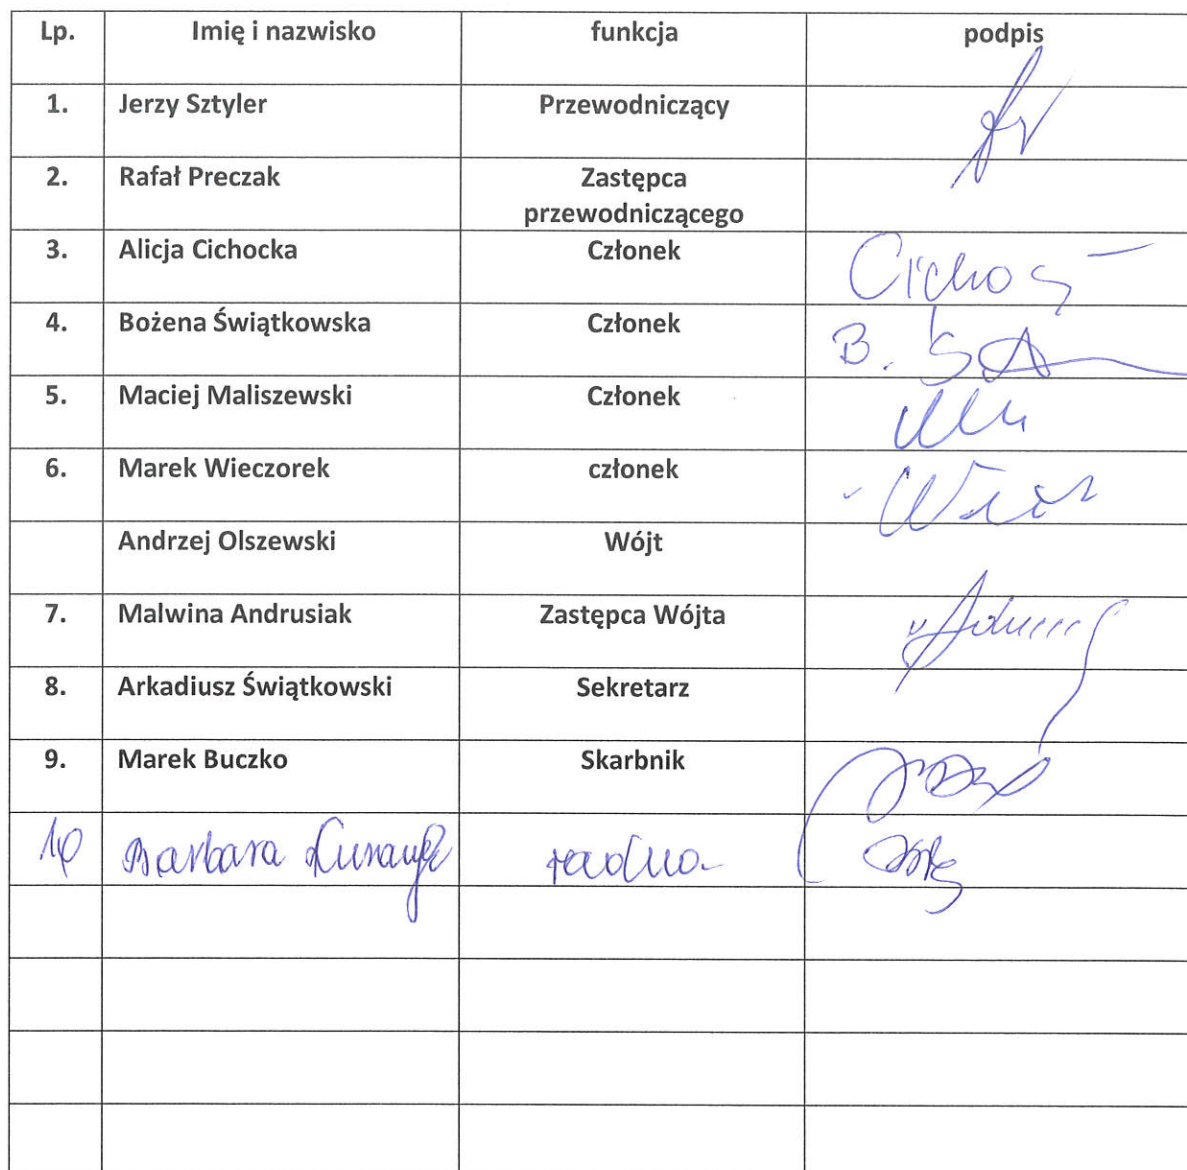 Lp. Imię i nazwisko funkcja podpis
1. Jerzy Sztyler Przewodniczący
2. Rafał Preczak Zastępca
przewodniczącego
3. Alicja Cichocka Członek
4. Bożena Świątkowska Członek
B.
5. Maciej Maliszewski Członek
6. Marek Wieczorek członek
Andrzej Olszewski Wójt
7. Malwina Andrusiak Zastępca Wójta
8. Arkadiusz Świątkowski Sekretarz
9. Marek Buczko Skarbnik
10 Barbara radna